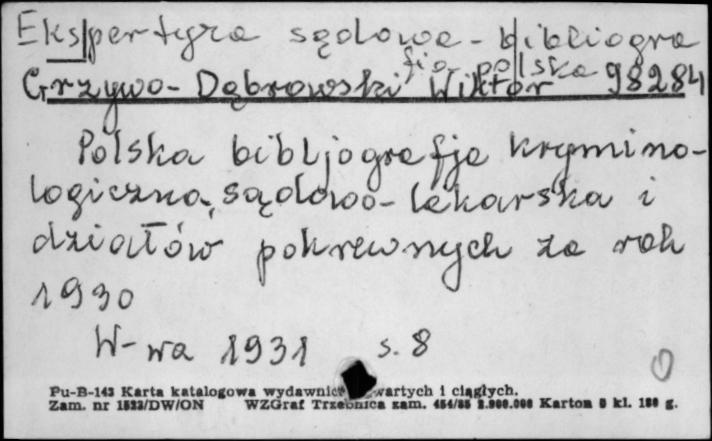 Ekspertyza sądowa - bibliogra
fia polska
Grzywo-Dąbrowski Wiktor 98284
Polska bibljografja krymino-
logiczna, sądowo-lekarska i
działów pokrewnych za rok
1930
W-wa 1931 s. 8
Pu-B-143 Karta katalogowa wydawnict wartych i ciągłych.
Zam. nr 1523/DW/ON WZGraf Trzebnica zam. 454/85 Karton kl. g.